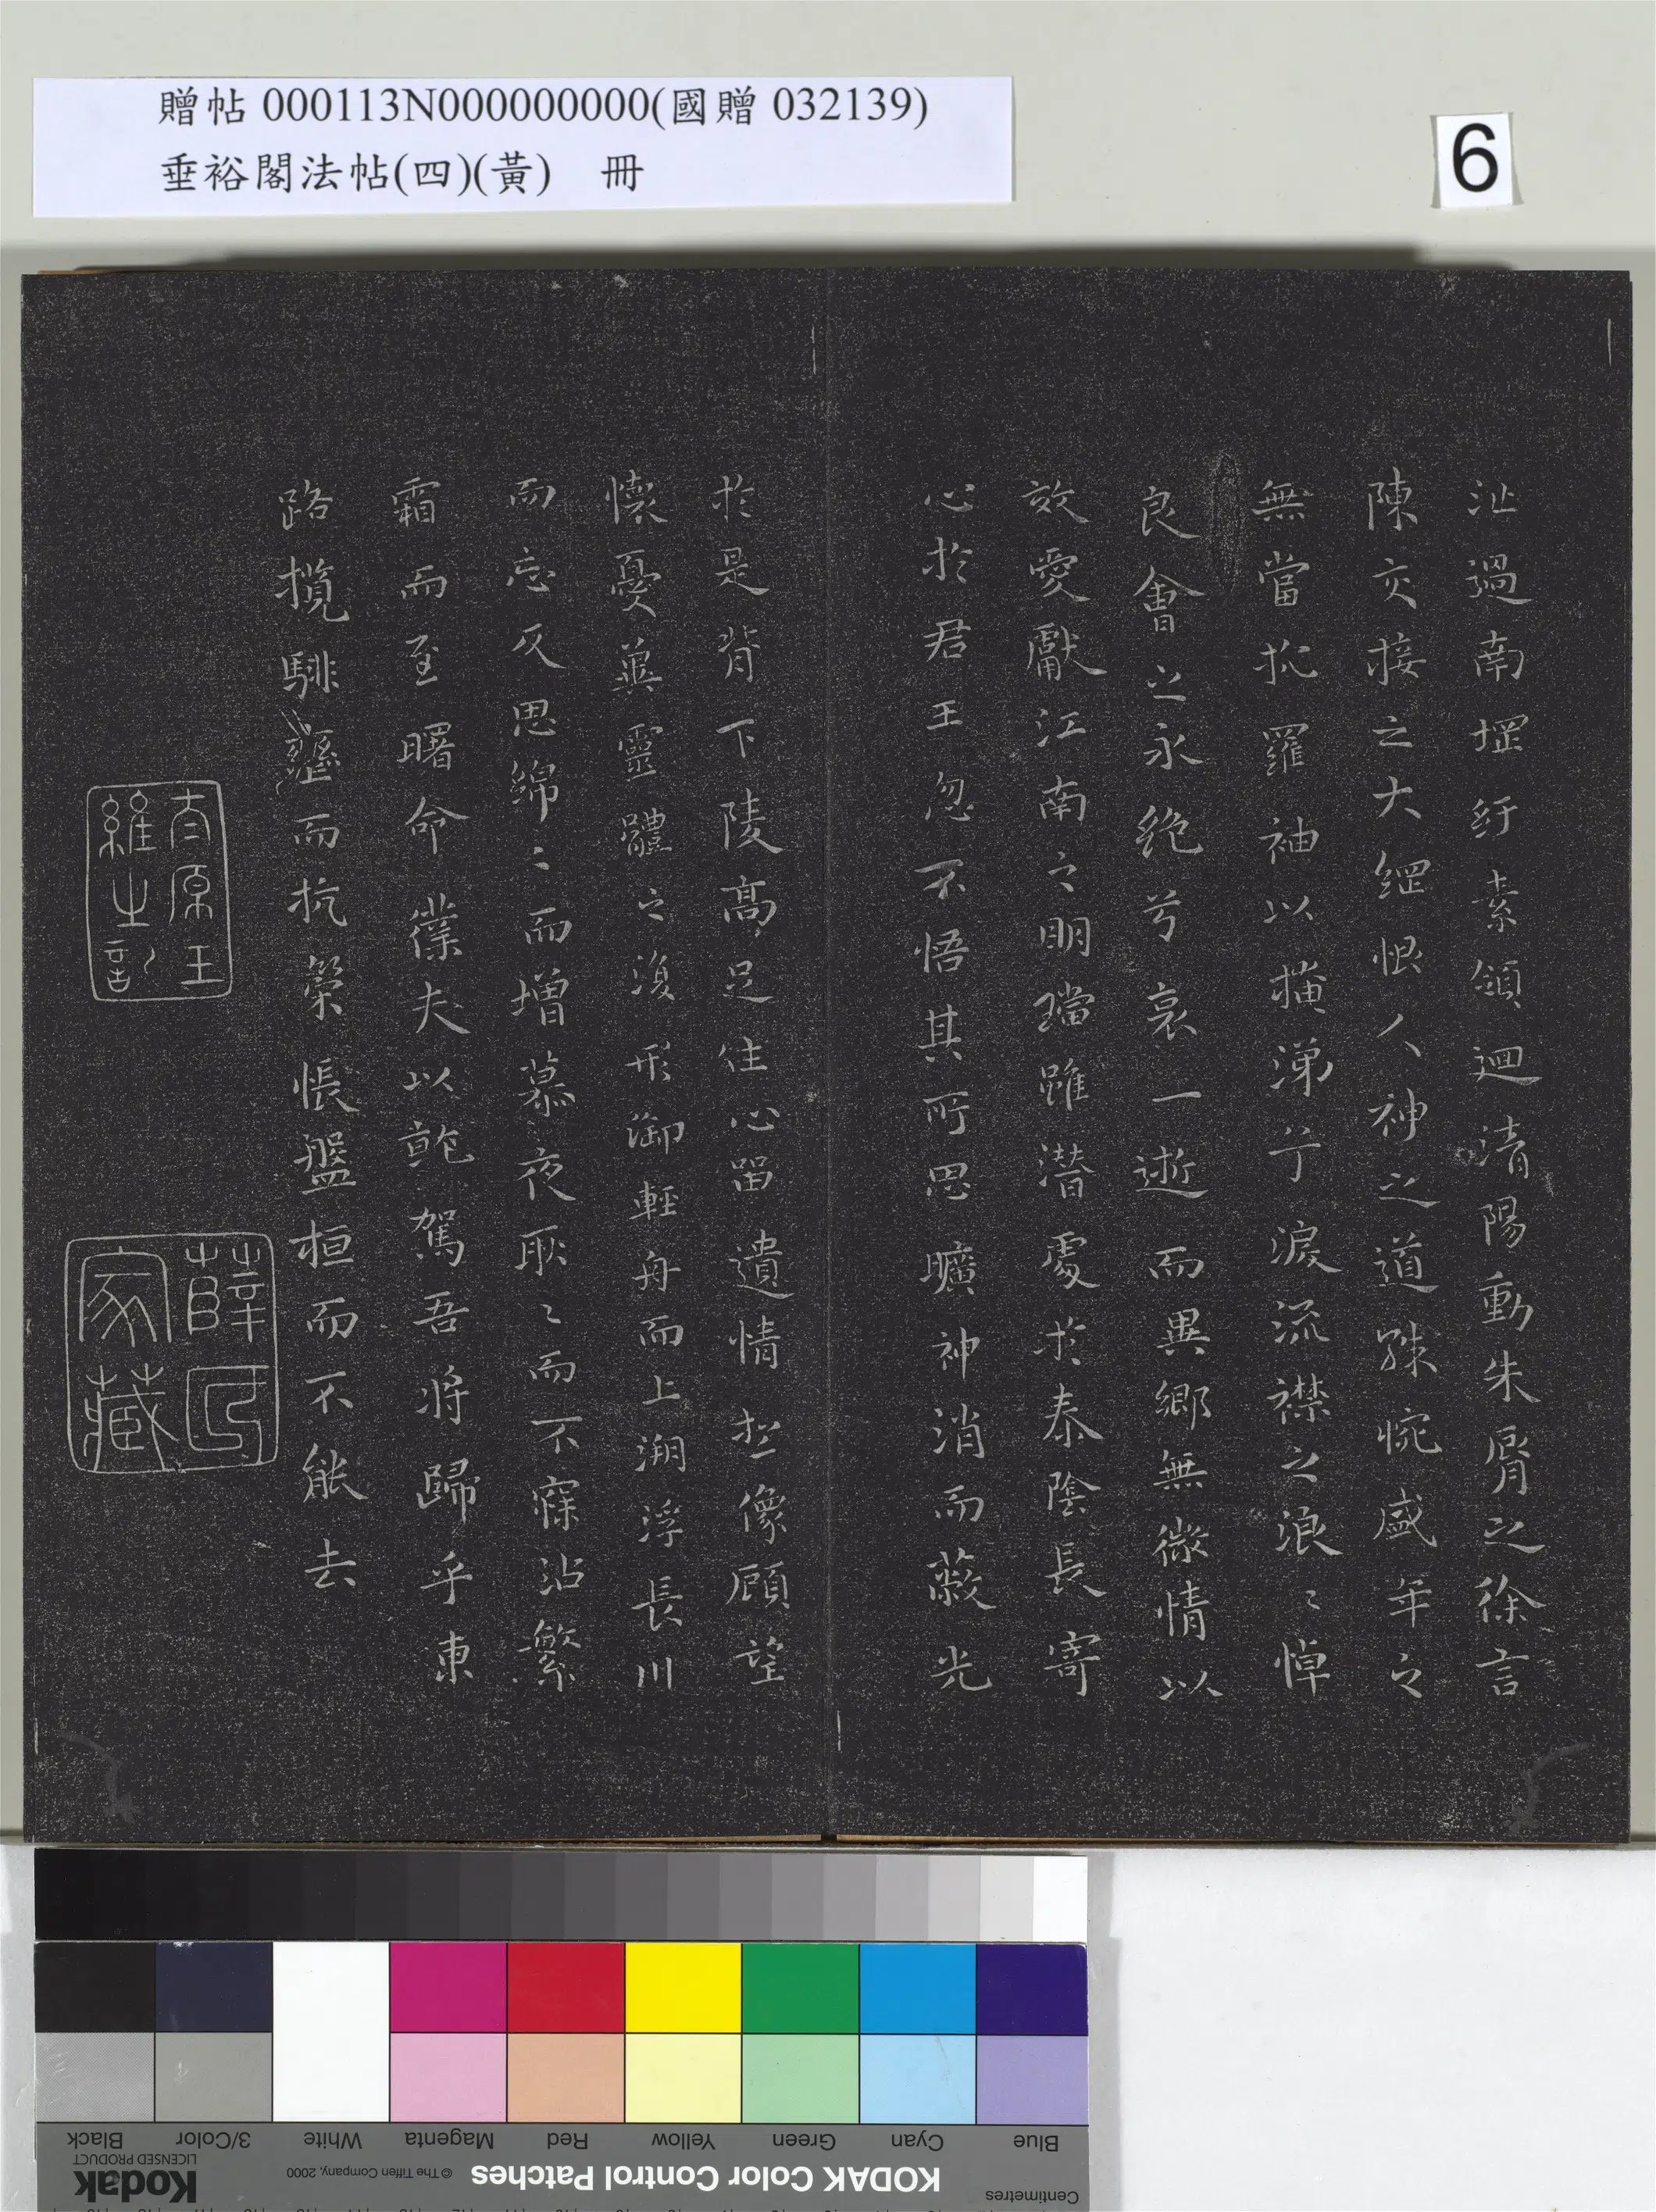 贈帖 000113N000000000(國贈 032139)
垂裕閣法帖(四)(黃) 冊
6
沚過南堽紆素領迴清陽動朱脣之徐言
陳交接之大綱恨人神之道殊惋盛年之
無當抗羅袖以掩涕兮淚流襟之浪〻悼
良會之永絕兮哀一逝而異鄉無微情以
效愛獻江南之明璫雖潛處於泰陰長寄
心於君王忽不悟其所思曠神消而蔽光
於是背下陵高足住心留遺情想像顧望
懷憂冀靈體之復形御輕舟而上溯浮長川
而忘反思綿〻而增慕夜耿〻而不寐沾繁
霜而至曙命僕夫以乾駕吾將歸乎東
路攬騑轡而抗策悵盤桓而不能去
太原王
維之記
薛氏
家藏
Blue
Cyan
Green
Yellow
Red
Magenta
White
3/Color
Black
Centimetres
KODAK Color Control Patches
© The Tiffen Company, 2000
Kodak
LICENSED PRODUCT